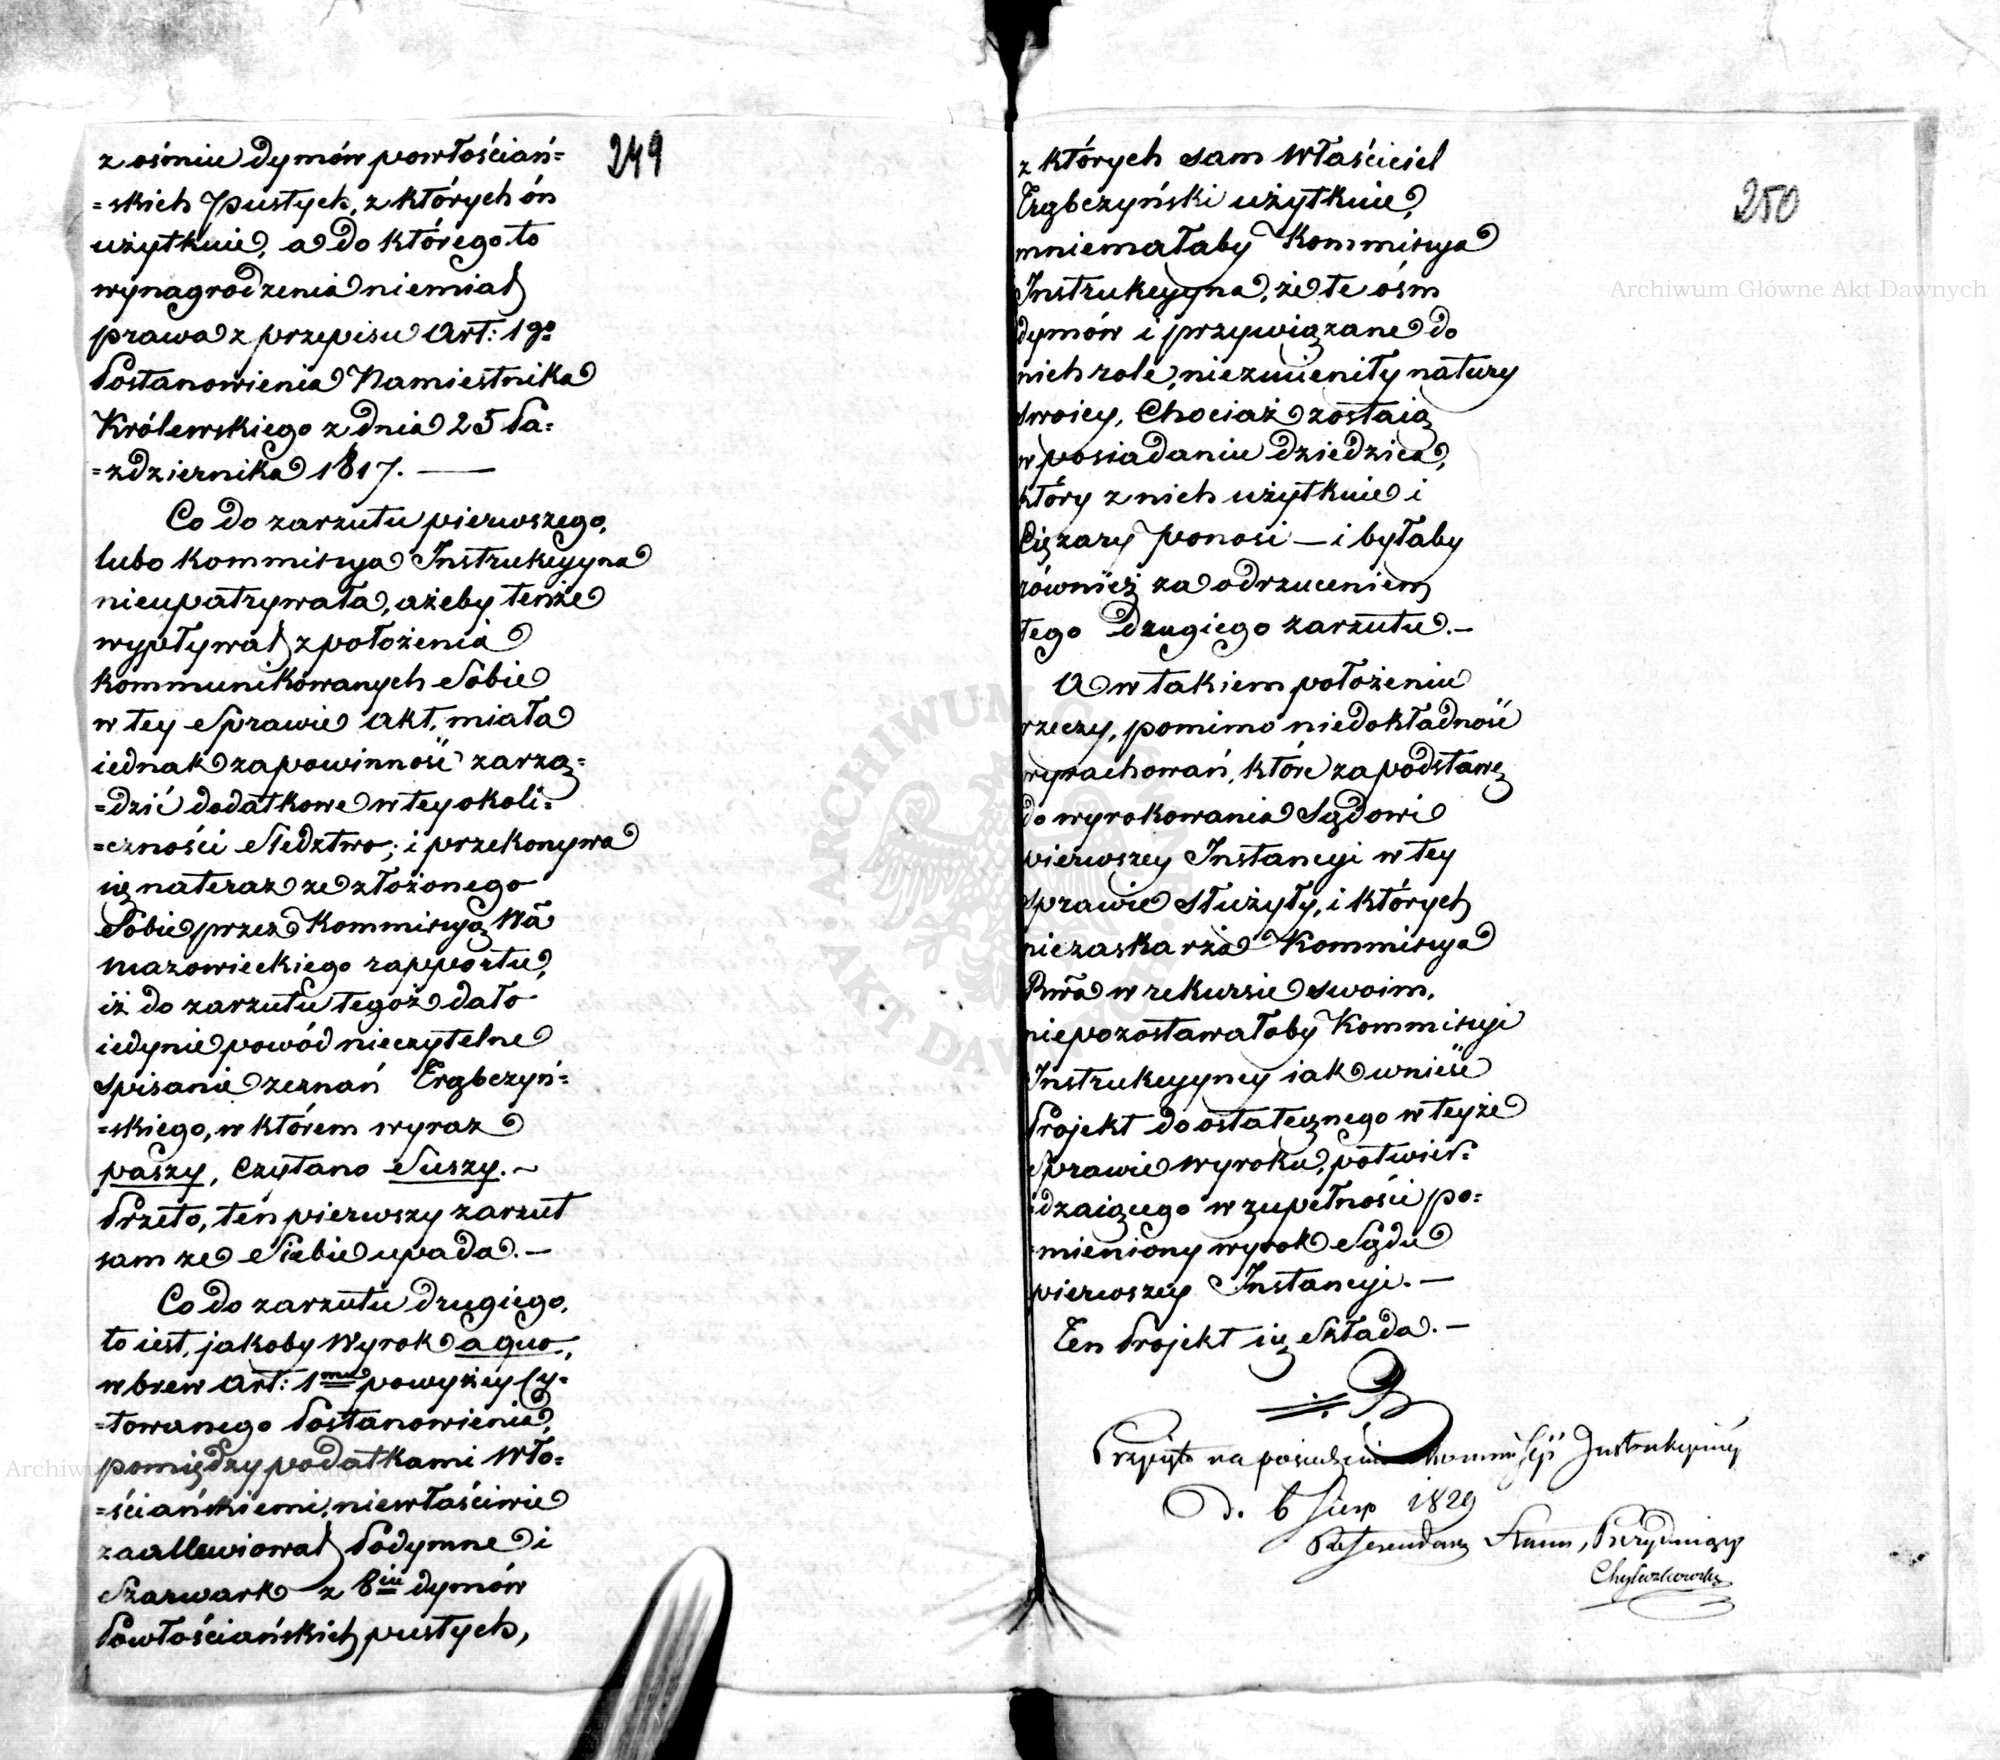 249
z ośmiu dymów powłościań=
=skich pustych, z których ón
użytkuie, a do którego to
wynagrodzenia niemiał
prawa z przepisu Art: 1go
Postanowienia Namiestnika
Królewskiego z dnia 25 Pa=
=zdziernika 1817. —
Co do zarzutu pierwszego,
lubo Kommissya Instrukcyyna
nieupatrywała, ażeby tenże
wypływał z położenia
kommunikowanych Sobie
w tey Sprawie Akt, miała
iednak za powinność zarzą=
=dzić dodatkowe w tey okoli=
=czności Sledztwo; i przekonywa
się nateraz ze złożonego
Sobie przez Kommissyą Wa
Mazowieckiego rapportu,
iż do zarzutu tegoż dało
iedynie powód nieczytelne
spisanie zeznań Trąbczyń=
=skiego, w którem wyraz
paszy, Czytano Suszy. ~
Przeto, ten pierwszy zarzut
sam ze Siebie upada. —
Co do zarzutu drugiego,
to iest, jakoby Wyrok a quo,
wbrew Art: 1mu powyżey Cy=
=towanego Postanowienia,
pomiędzy podatkami Wło=
=ściańskiemi, niewłaściwie
zaallewiował Podymne i
Szarwark z 8iu dymów
Powłościańskich pustych,
250
z których sam Właściciel
Trąbczyński użytkuie,
mniemałaby Kommissya
Instrukcyyna, że te ośm
dymów i przywiązane do
nich role, niezmieniły natury
swoiey, Chociaż zostaią
w posiadaniu dziedzica,
który z nich użytkuie i
Ciężary ponosi — i byłaby
również za odrzuceniem
tego drugiego zarzutu. —
A w takiem położeniu
rzeczy, pomimo niedokładność
wyrachowań, które za podstawę
do wyrokowania Sądowi
pierwszey Instancyi w tey
Sprawie służyły, i których
niezaskarża Kommissya
Rwa w rekursie swoim,
niepozostawałoby Kommissyi
Instrukcyyney iak wnieść
Projekt do ostatecznego w teyże
Sprawie wyroku, potwier=
=dzaiącego w zupełności po=
=mieniony wyrok Sądu
pierwszey Instancyi. —
Ten Projekt się Składa. —
Przyięto na posiedzeniu Kommissyi Instrukcyiney
D. 6 Sierp 1829
Referendarz Stanu, Prezyduiący